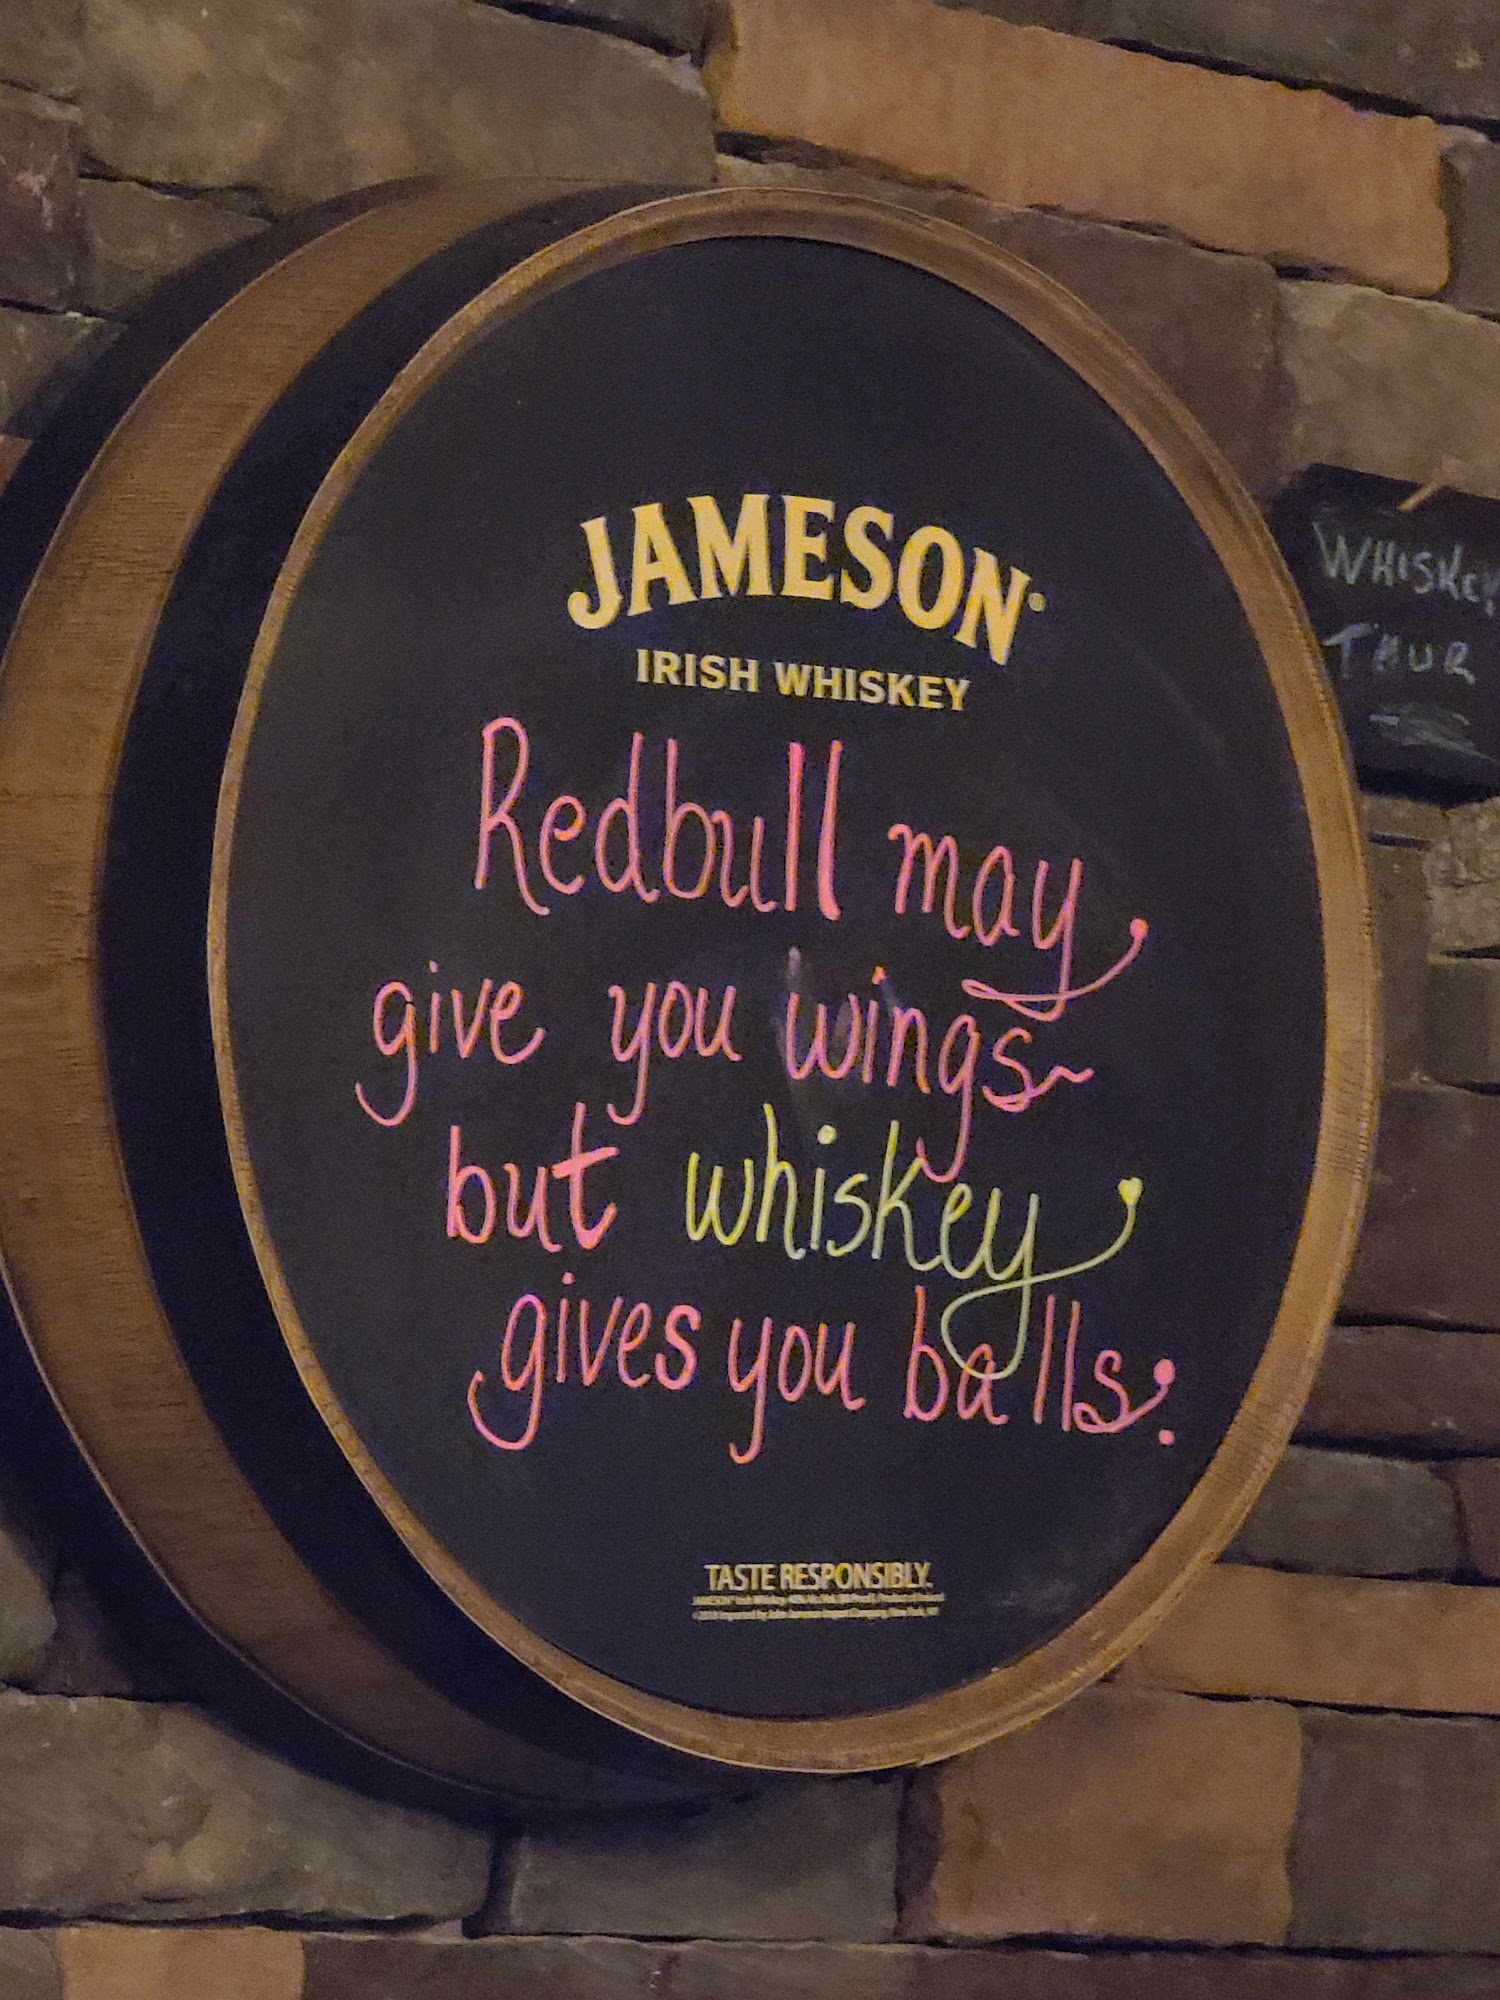 JAMESON®
IRISH WHISKEY
Redbull may
give you wings~
but whiskey
gives you balls.
TASTE RESPONSIBLY.
WHISKEY
TOUR